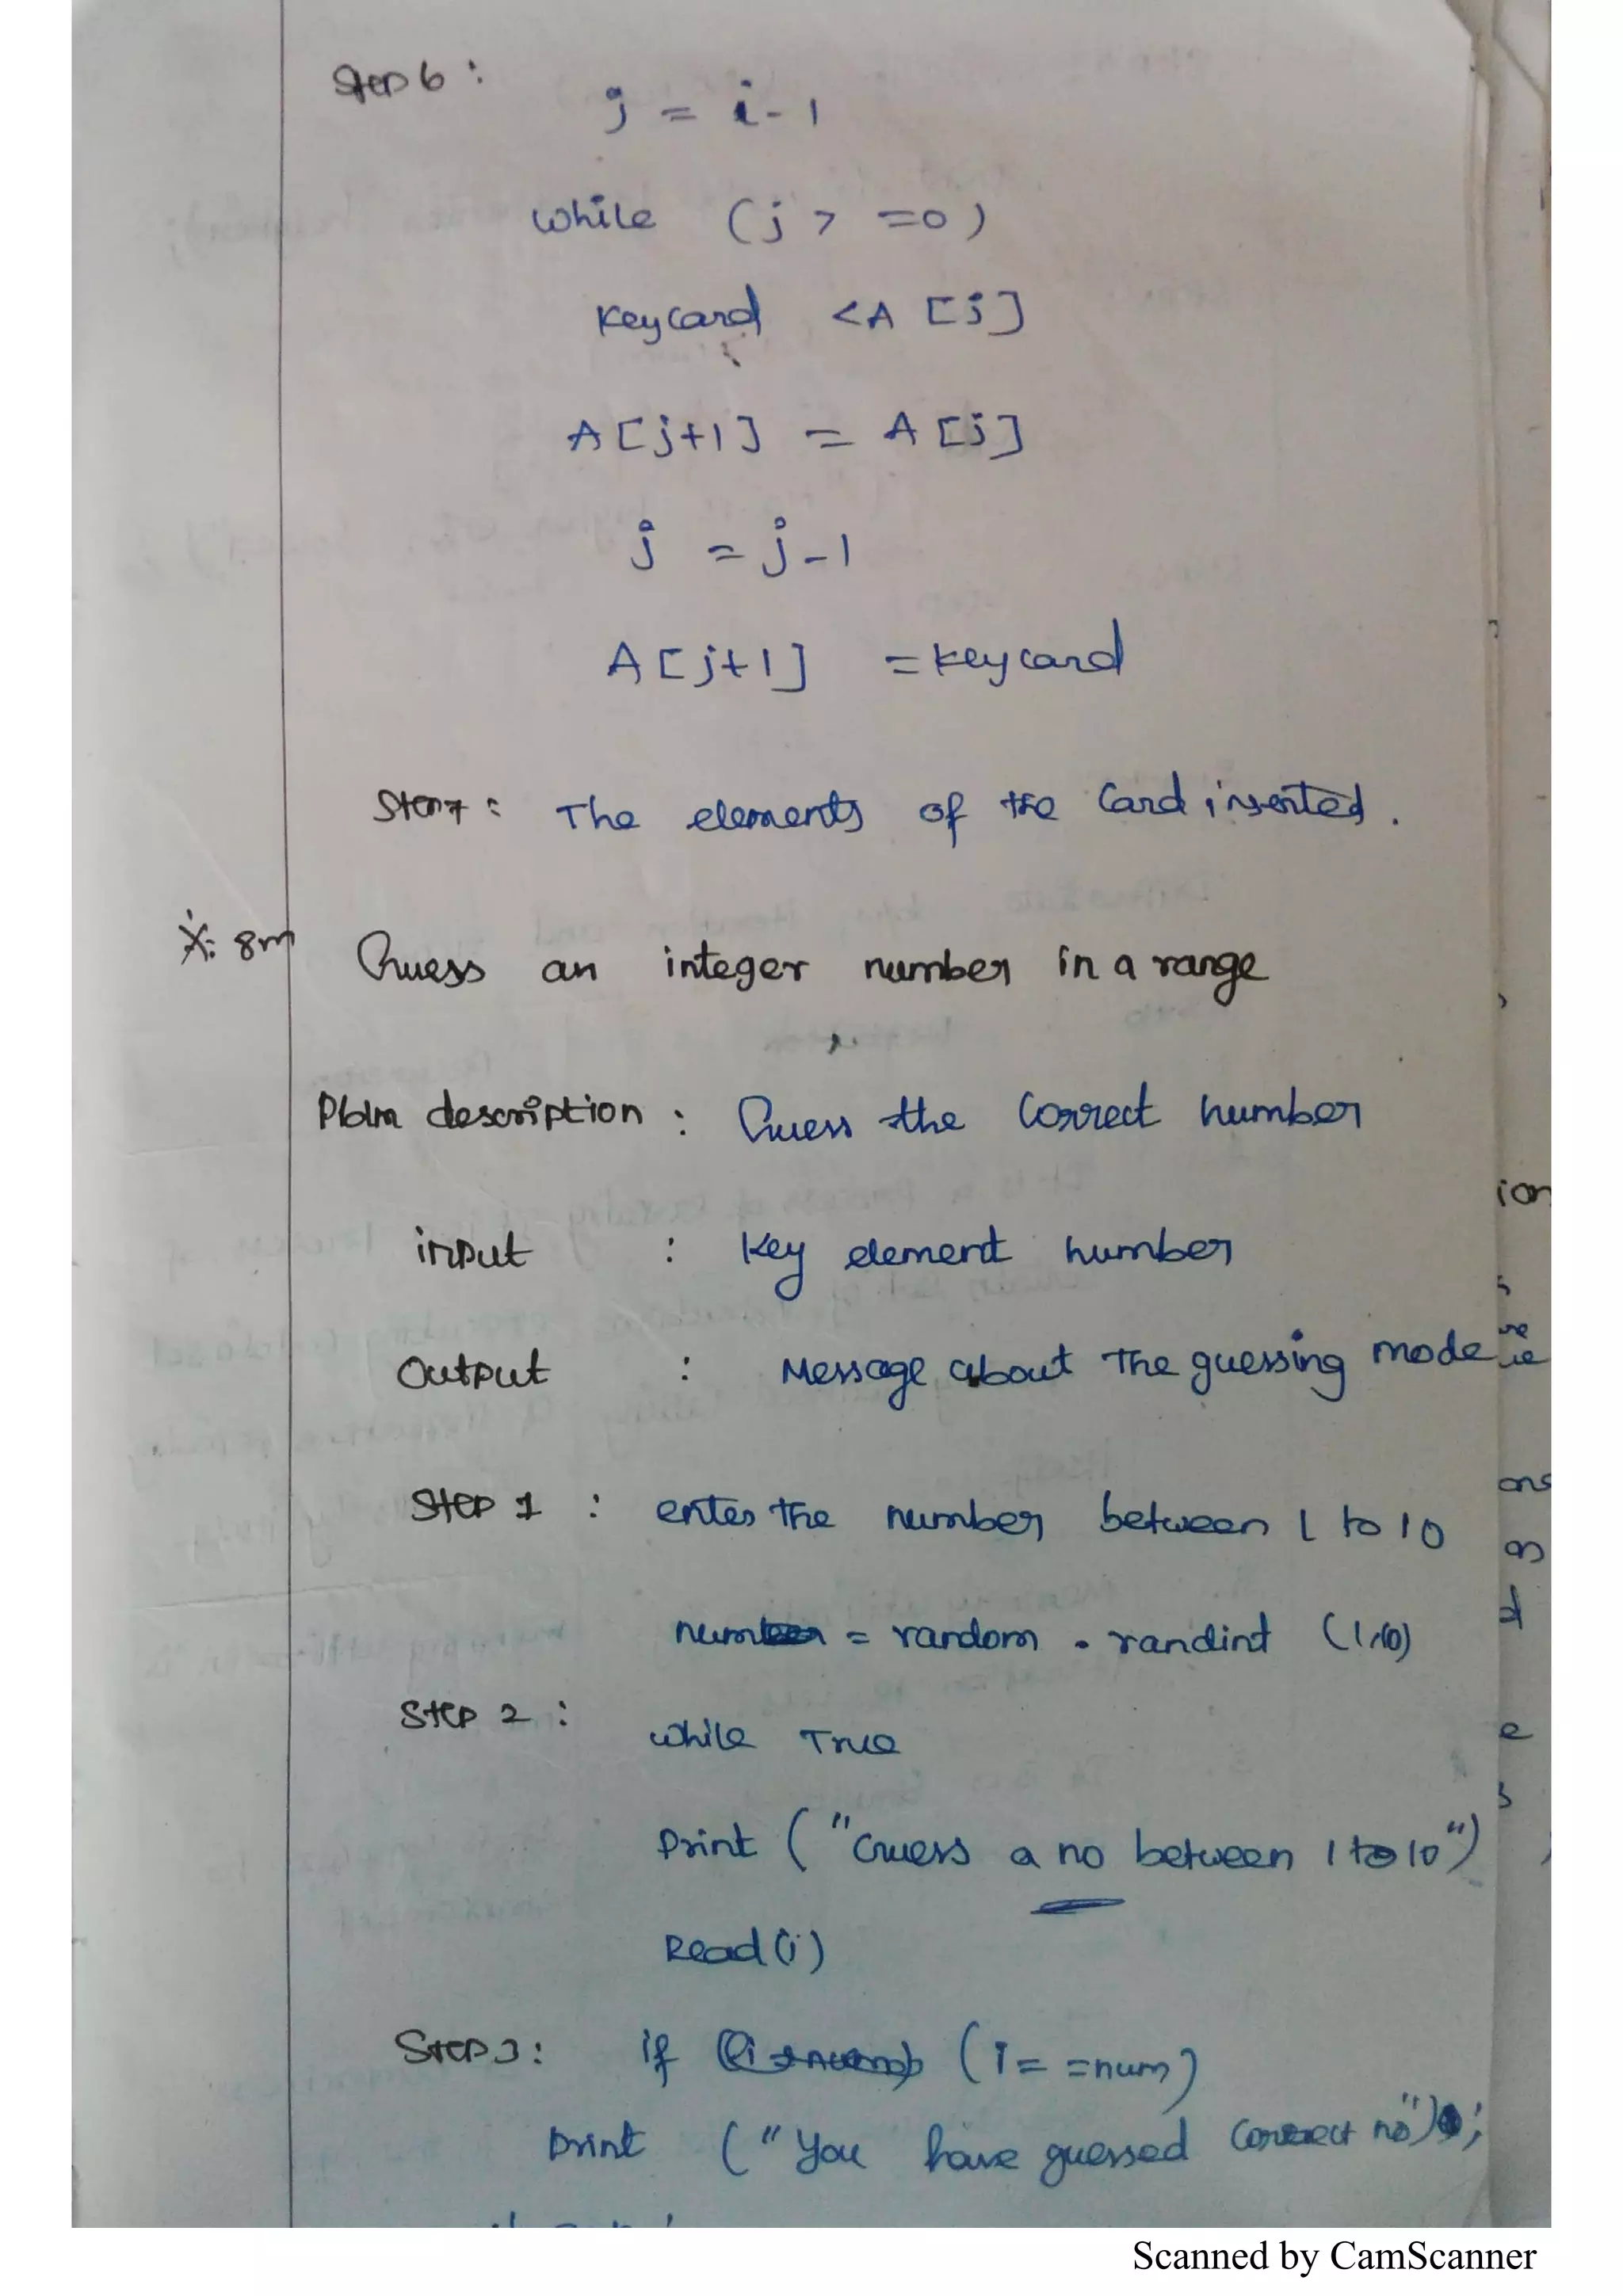 Step 6 :
j = i - 1
while (j > =0)
Keycard <A [j]
A[j+1] = A[j]
j = j-1
A[j+1] = keycard
Step 7 : The elements of the Card inserted.
8m Guess an integer number in a range
Pblm description : Guess the Correct number
input : Key element number
Output : Message about The guessing mode
Step 1 : enter The number between 1 to 10
number = random . randint (1,10)
Step 2 :
while True
Print ("Guess a no between 1 to 10")
Read(i)
Step 3 : if (i= =num)
Print ("You have guessed Correct no");
Scanned by CamScanner